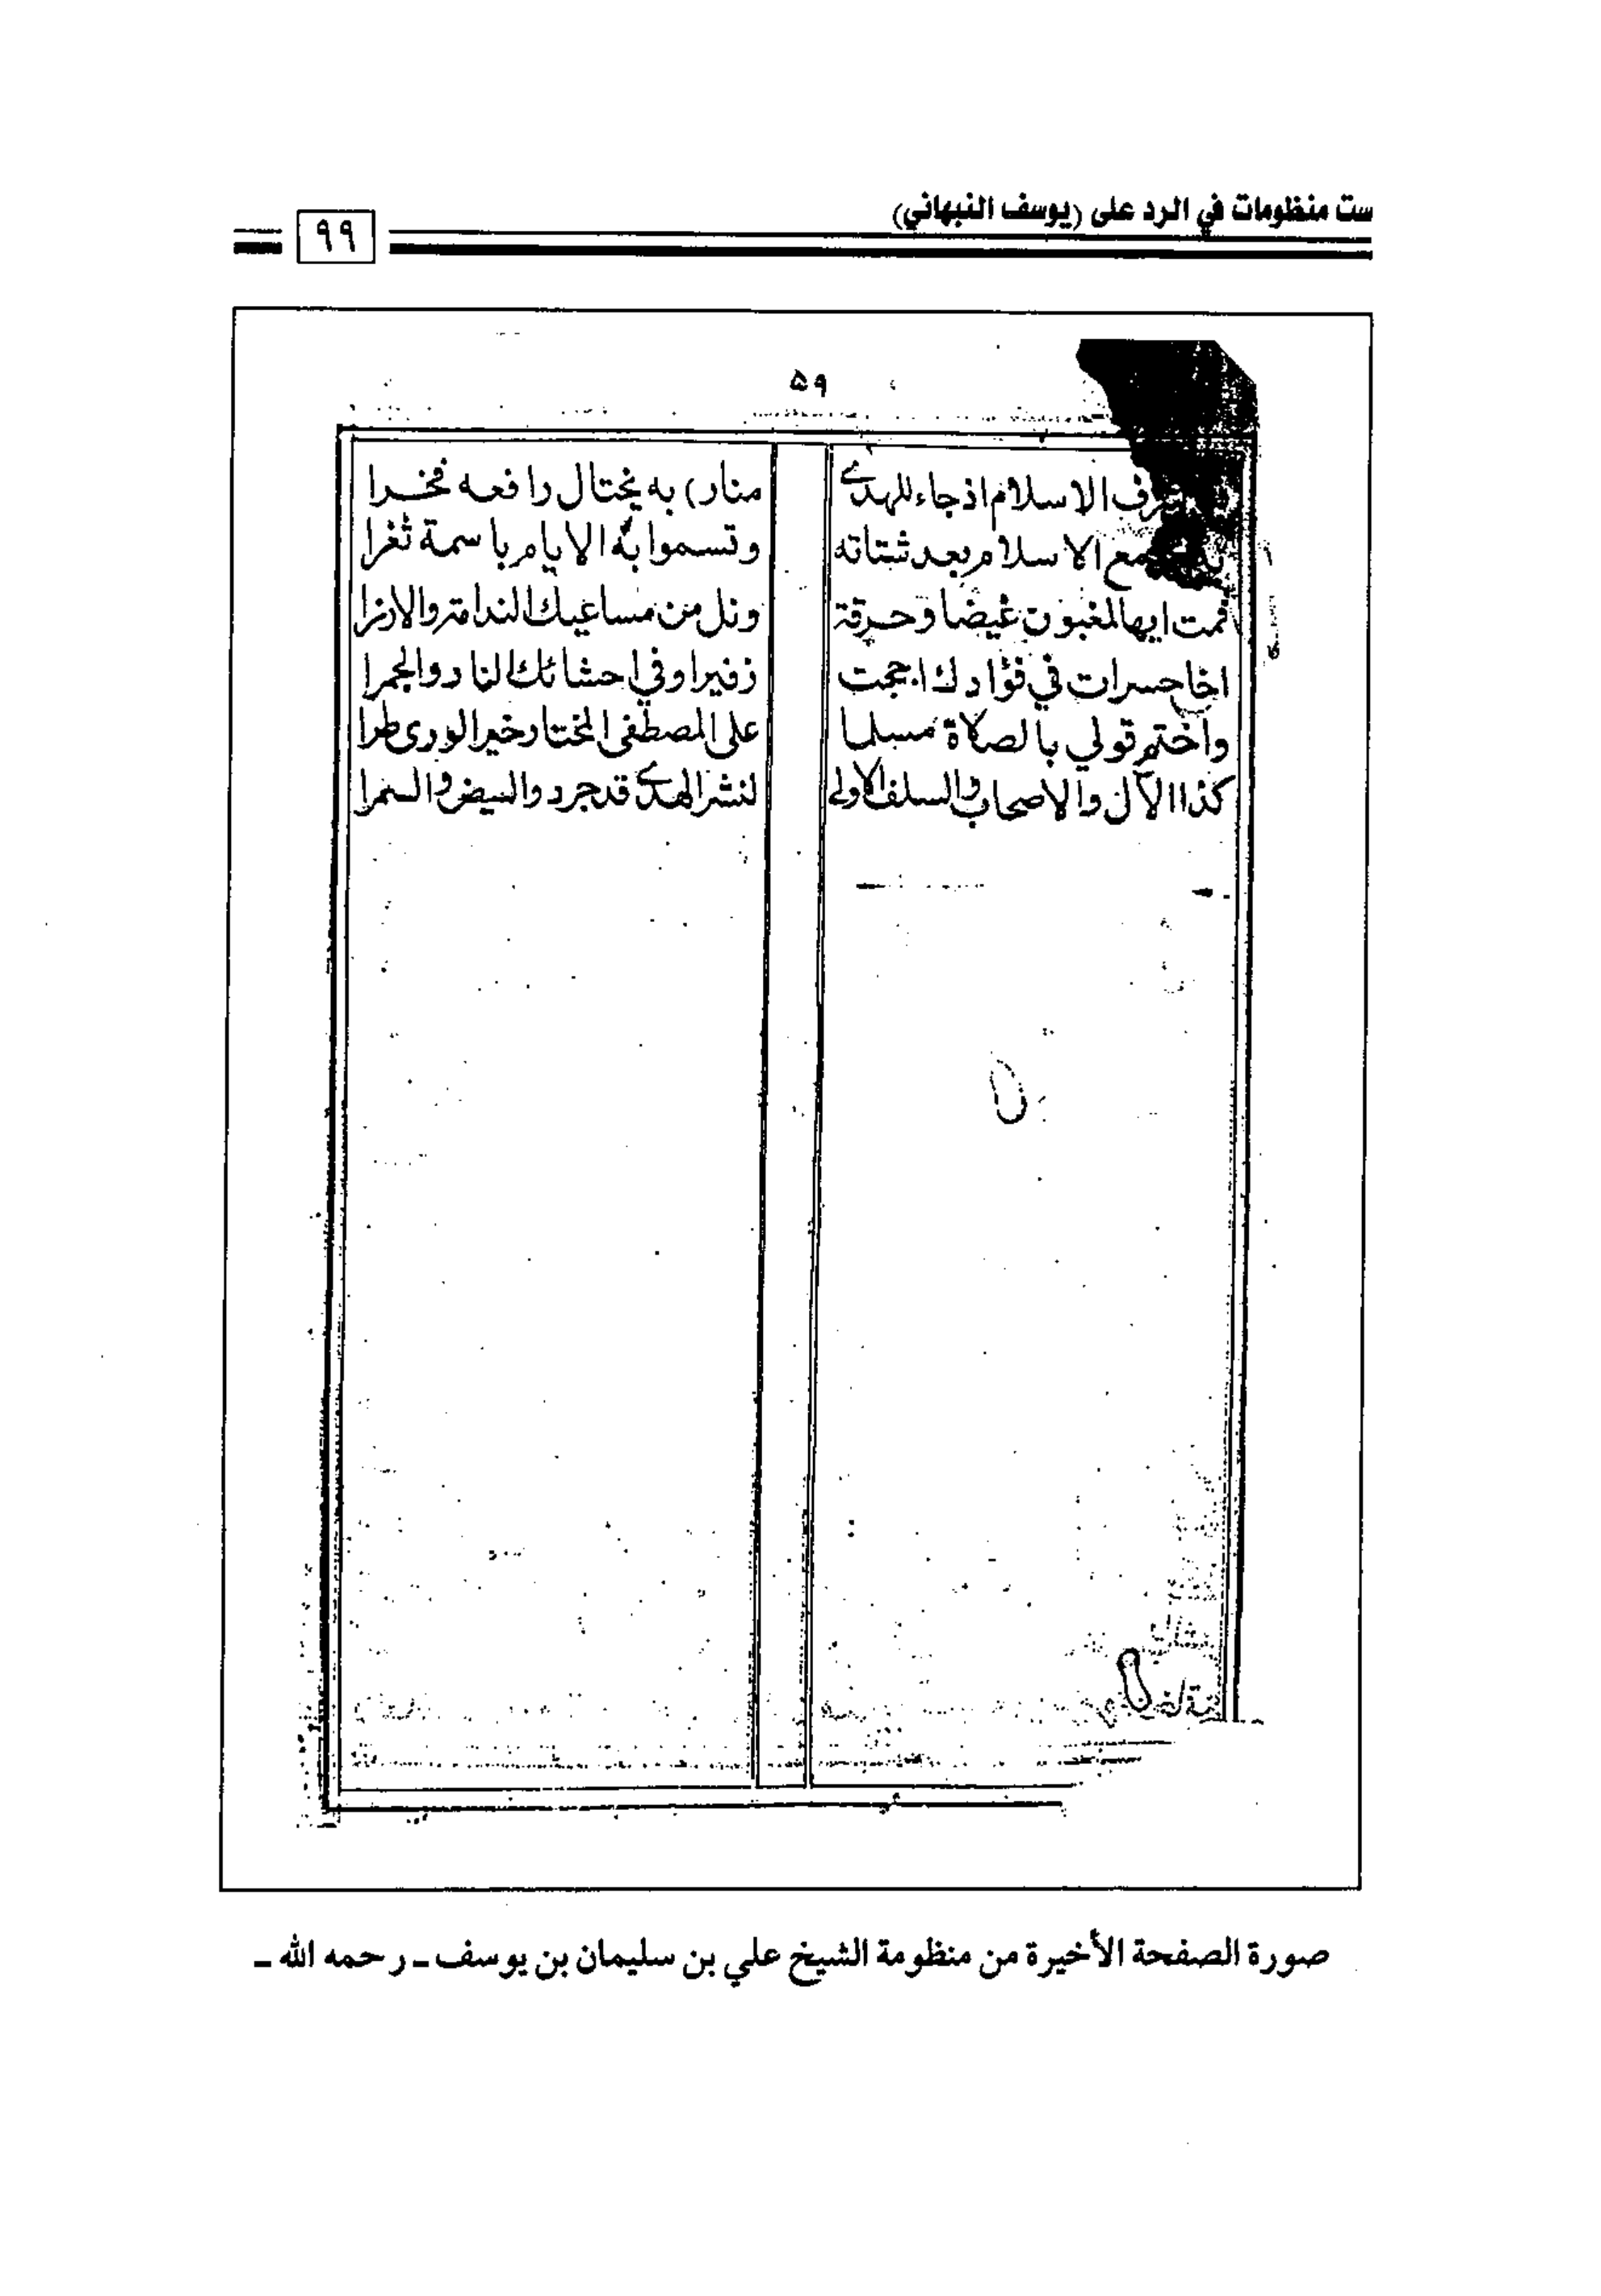 ست منظومات في الرد على (يوسف النبهاني)
٩٩
٥٩
الاسلام اذ جاء للهدى منار) به يختال رافعه فخرا
الاسلام بعد شتاته وتسموا به الايام باسمة ثغرا
فمت ايها المغبون غيضا وحرقة ونل من مساعيك الندامة والازرا
اخا حسرات في فؤادك اججت زفيرا وفي احشائك النار والجمرا
واختم قولي بالصلاة مسلما على المصطفى المختار خير الورى طرا
كذا الآل والاصحاب والسلف الاولى لنشر الهدى قد جردوا البيض والسمرا
صورة الصفحة الأخيرة من منظومة الشيخ علي بن سليمان بن يوسف ـ رحمه الله ـ